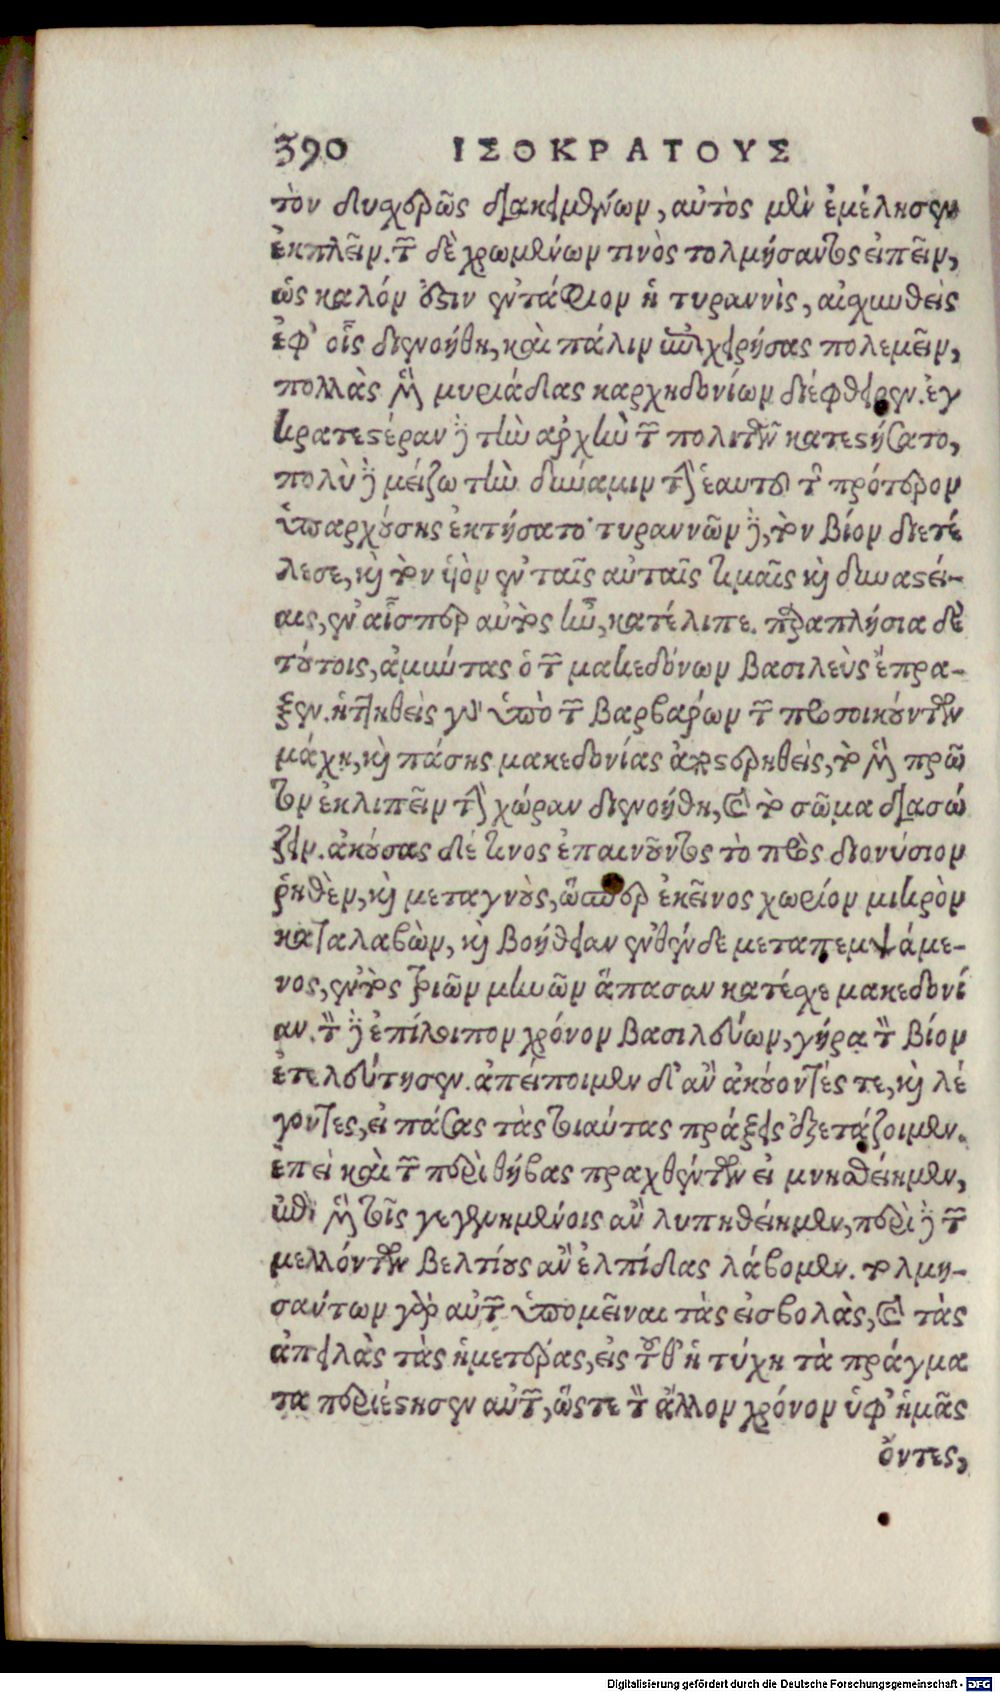 390 ΙΣΟΚΡΑΤΟΥΣ
τὸν δυσχερῶς διακειμένων, αὐτὸς μὲν ἐμέλησεν
ἐκπλεῖν. τῶν δὲ χρωμένων τινὸς τολμήσαντος εἰπεῖν,
ὡς καλόν ἐστιν ἐντάφιον ἡ τυραννὶς, αἰσχυνθεὶς
ἐφ' οἷς διενοήθη, καὶ πάλιν ἐπιχειρήσας πολεμεῖν,
πολλὰς μὲν μυριάδας καρχηδονίων διέφθειρεν. ἐγ
κρατεστέραν δὲ τὴν ἀρχὴν τῶν πολιτῶν κατεστήσατο,
πολὺ δὲ μείζω τὴν δύναμιν τὴν ἑαυτοῦ τῆς πρότερον
ὑπαρχούσης ἐκτήσατο· τυραννῶν δὲ, τὸν βίον διετέ
λεσε, καὶ τὸν υἱὸν ἐν ταῖς αὐταῖς τιμαῖς καὶ δυναστεί-
αις, ἐν αἷσπερ αὐτὸς ἦν, κατέλιπε. παραπλήσια δὲ
τούτοις, ἀμύντας ὁ τῶν μακεδόνων βασιλεὺς ἔπρα-
ξεν. ἡττηθεὶς γὰρ ὑπὸ τῶν βαρβάρων τῶν προσοικούντων
μάχῃ, καὶ πάσης μακεδονίας ἀποστερηθεὶς, τὸ μὲν πρῶ
τον ἐκλιπεῖν τὴν χώραν διενοήθη, καὶ τὸ σῶμα διασώ
ζειν. ἀκούσας δέ τινος ἐπαινοῦντος τὸ πρὸς διονύσιον
ῥηθὲν, καὶ μεταγνοὺς, ὥσπερ ἐκεῖνος χωρίον μικρὸν
καταλαβὼν, καὶ βοήθειαν ἐνθένδε μεταπεμψάμε-
νος, ἐντὸς τριῶν μηνῶν ἅπασαν κατέσχε μακεδονί
αν. τὸν δὲ ἐπίλοιπον χρόνον βασιλεύων, γήρᾳ τὸν βίον
ἐτελεύτησεν. ἀπείποιμεν δ' ἂν ἀκούοντές τε, καὶ λέ
γοντες, εἰ πάσας τὰς τοιαύτας πράξεις ἐξετάζοιμεν.
ἐπεὶ καὶ τῶν περὶ θήβας πραχθέντων εἰ μνησθείημεν,
ἐπὶ μὲν τοῖς γεγενημένοις ἂν λυπηθείημεν, περὶ δὲ τῶν
μελλόντων βελτίους ἂν ἐλπίδας λάβοιμεν. τολμη-
σάντων γὰρ αὐτῶν ὑπομεῖναι τὰς εἰσβολὰς, καὶ τὰς
ἀπειλὰς τὰς ἡμετέρας, εἰς τοῦθ' ἡ τύχη τὰ πράγμα
τα περιέστησεν αὐτῶν, ὥστε τὸν ἄλλον χρόνον ὑφ' ἡμᾶς
ὄντες,
Digitalisierung gefördert durch die Deutsche Forschungsgemeinschaft - DFG